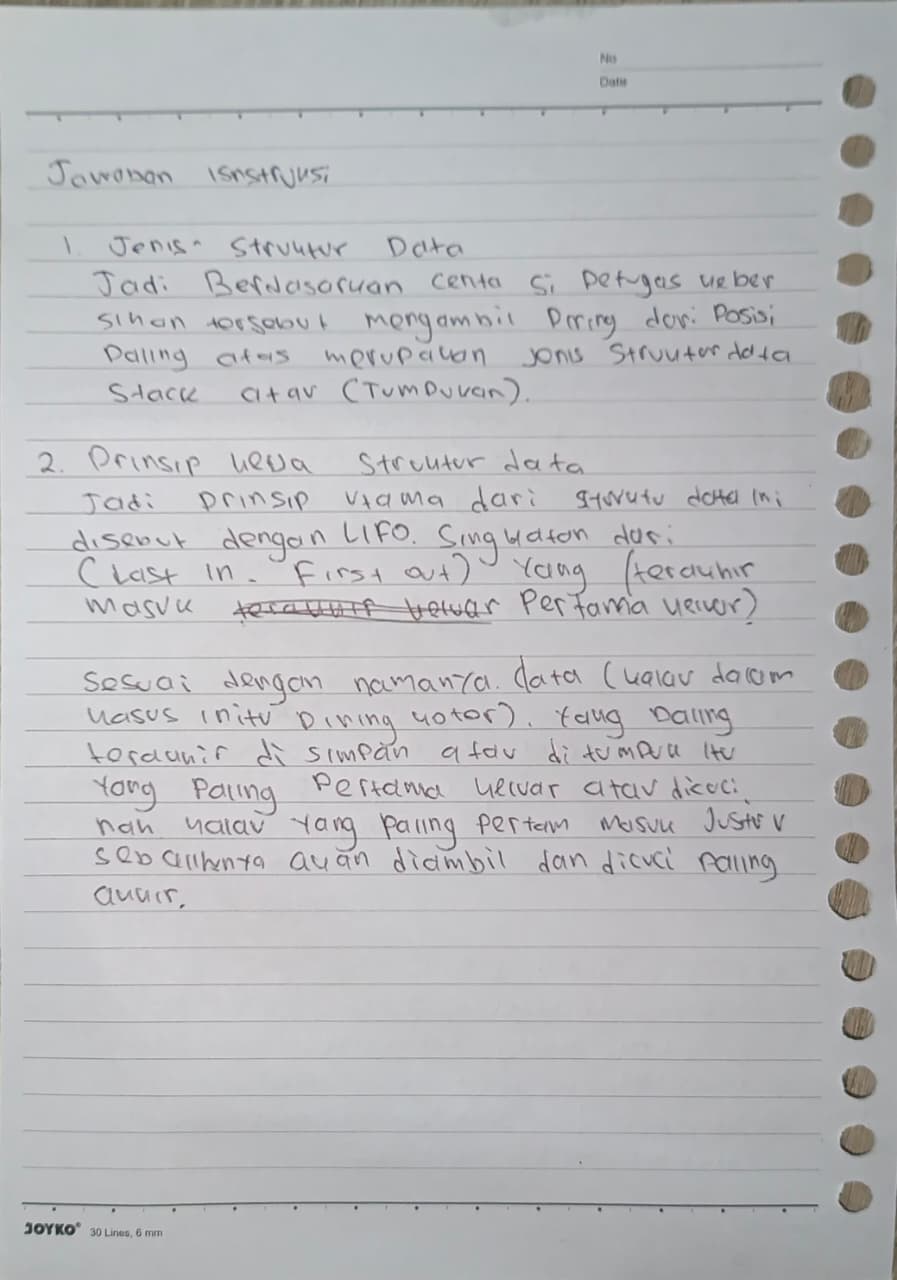 No
Date
Jawaban Isnstruksi
1. Jenis- Struktur Data
Jadi Berdasarkan cerita si petugas keber
sihan tersebut mengambil Piring dari Posisi
Paling atas merupakan jenis Struktur data
Stack atau (Tumpukan).
2. Prinsip kerja Struktur data
Jadi prinsip utama dari data ini
disebut dengan LIFO. Singkatan dari
(Last In. First out) Yang (terakhir
masuk keluar Pertama keluar)
Sesuai dengan namanya. data (kalau dalam
kasus initu Piring kotor). Yang Paling
terakhir di simpan atau di tumpuk itu
Yang Paling Pertama keluar atau dicuci
nah kalau Yang paling pertam masuk Justru
sebaliknya akan diambil dan dicuci Paling
akhir.
JOYKO® 30 Lines, 6 mm